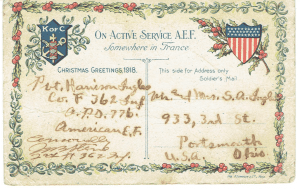 K of C
ON ACTIVE SERVICE A.E.F.
Somewhere in France
CHRISTMAS GREETINGS, 1918.
This side for Address only
Soldier's Mail
Pvt. Harrison
Co. F 362 Inf
A.P.O. 776.
American E.F.
Mr and Mrs. S.A.
933, 3rd St.
Portsmouth
Ohio
U.S.A.
362 Inf.